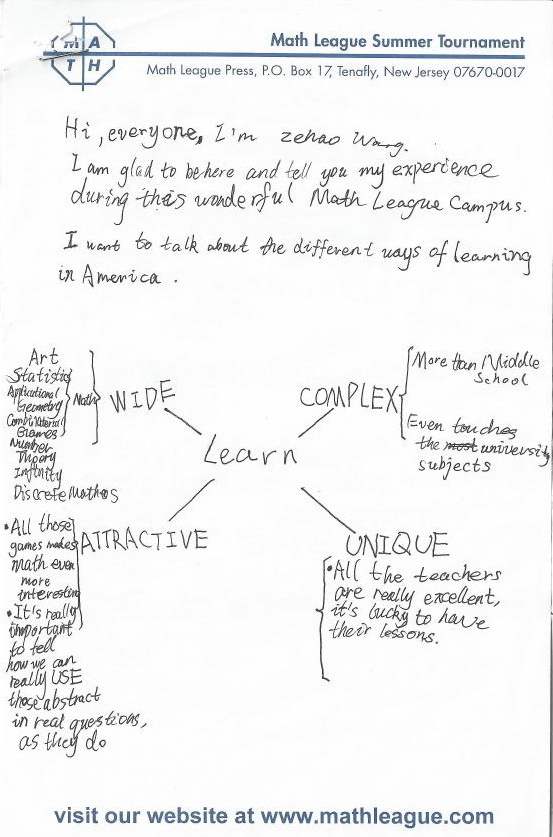 M A
T H
Math League Summer Tournament
Math League Press, P.O. Box 17, Tenafly, New Jersey 07670-0017
Hi, everyone, I'm zehao Wang.
I am glad to be here and tell you my experience
during this wonderful Math League Campus.
I want to talk about the different ways of learning
in America.
Art
Statistics
Applicational
Geometry
Combinatorial
Games
Number
Theory
Infinity
Discrete Mathes
Math
WIDE
COMPLEX
More than Middle
School
Even touches
the most university
subjects
Learn
ATTRACTIVE
• All those
games makes
math even
more
interesting
• It's really
important
to tell
how we can
really USE
those abstract
in real questions,
as they do
UNIQUE
• All the teachers
are really excellent,
it's lucky to have
their lessons.
visit our website at www.mathleague.com